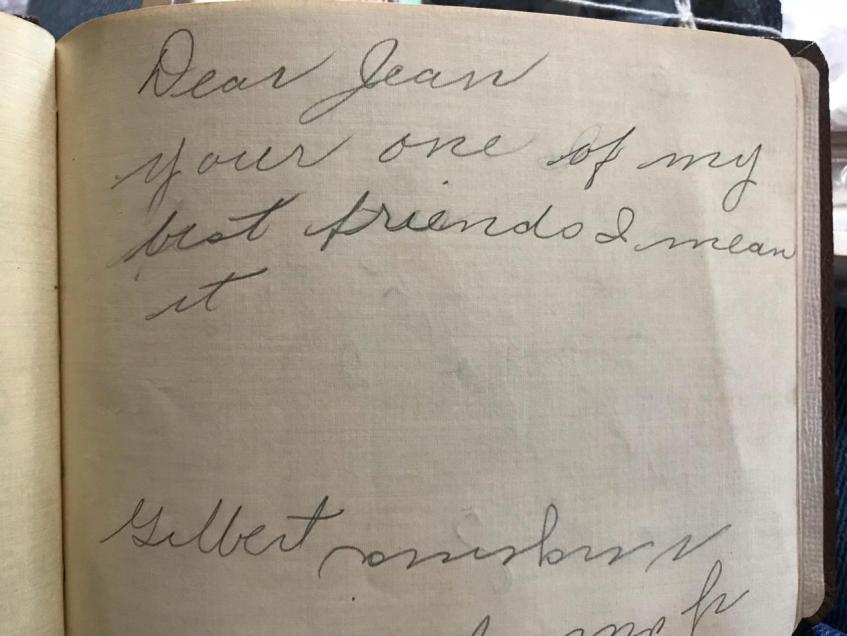 Dear Jean
your one of my
best friends I mean
it
Gilbert